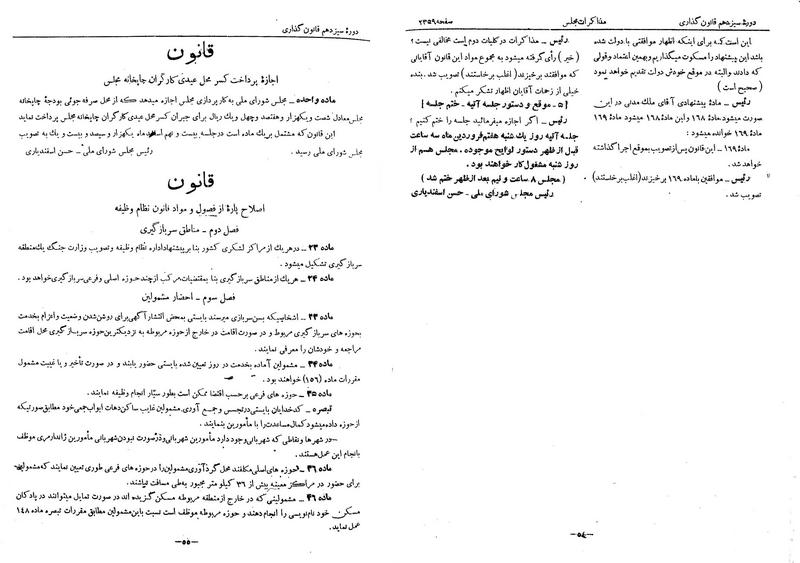 دورهٔ سیزدهم قانون گذاری
مذاکرات مجلس
صفحه ۲۳۵۹
این است که برای اینکه اظهار موافقتی با دولت شده
باشد این پیشنهاد را مسکوت میگذاریم و بهمین اعتماد وقولی
که دادند والبته در موقع خودش دولت تقدیم خواهد نمود
( صحیح است )
رئیس ــ مادهٔ پیشنهادی آقای ملک مدنی در این
صورت میشود. ماده ۱۶۸ و این مادهٔ ۱۶۸ میشود مادهٔ ۱۶۹
ماده ۱۶۹ خوانده میشود :
مادهٔ ۱۶۹ ــ این قانون پس از تصویب بموقع اجرا گذاشته
خواهد شد .
رئیس ــ موافقین با ماده ۱۶۹ برخیزند (اغلب برخاستند)
تصویب شد .
رئیس ــ مذاکرات در کلیات دوم است مخالفی نیست ؟
( خیر ) رأی گرفته میشود به مجموع مواد این قانون آقایانی
که موافقند برخیزند (اغلب برخاستند) تصویب شد . بنده
خیلی از زحمات آقایان اظهار تشکر میکنم .
[ ۵ ــ موقع و دستور جلسه آتیه ــ ختم جلسه ]
رئیس ــ اگر اجازه میفرمائید جلسه را ختم کنیم ؟
جلسه آتیه روز یک شنبه هفتم فروردین ماه سه ساعت
قبل از ظهر دستور لوایح موجوده . مجلس هم از
روز شنبه مشغول کار خواهند بود .
( مجلس ۸ ساعت و نیم بعد از ظهر ختم شد )
رئیس مجلس شورای ملی ــ حسن اسفندیاری
ــ ۵۴ ــ
دورهٔ سیزدهم قانون گذاری
قانون
اجازهٔ پرداخت کسر محل عیدی کارگران چاپخانه مجلس
ماده واحده ــ مجلس شورای ملی به کارپردازی مجلس اجازه میدهد که از محل صرفه جوئی بودجهٔ چاپخانه
مجلس معادل شصت و یکهزار و هفتصد و چهل و یک ریال برای جبران کسر محل عیدی کارگران چاپخانه مجلس پرداخت نماید
این قانون که مشتمل بریک ماده است در جلسه بیست و نهم اسفند ماه یکهزار و سیصد و بیست و یک به تصویب
مجلس شورای ملی رسید .
رئیس مجلس شورای ملی ــ حسن اسفندیاری
قانون
اصلاح پارهٔ از فصول و مواد قانون نظام وظیفه
فصل دوم ــ مناطق سربازگیری
ماده ۲۳ ــ در هریک از مراکز لشکری کشور بنا بر پیشنهاد اداره نظام وظیفه و تصویب وزارت جنگ یک منطقه
سربازگیری تشکیل میشود .
ماده ۲۴ ــ هریک از مناطق سربازگیری بنا بمقتضیات مرکب از چند حوزه اصلی و فرعی سربازگیری خواهد بود .
فصل سوم ــ احضار مشمولین
ماده ۳۳ ــ اشخاصیکه بسن سربازی میرسند بایستی بمحض انتشار آگهی برای روشن شدن وضعیت و اعزام بخدمت
بحوزه های سربازگیری مربوط و در صورت اقامت در خارج از حوزه مربوطه به نزدیکترین حوزه سربازگیری محل اقامت
مراجعه و خودشان را معرفی نمایند .
ماده ۳۴ ــ مشمولین آماده بخدمت در روز تعیین شده بایستی حضور یابند و در صورت تأخیر و یا غیبت مشمول
مقررات ماده (۱۵۶) خواهند بود .
ماده ۳۵ ــ حوزه های فرعی برحسب اقتضا ممکن است بطور سیّار انجام وظیفه نمایند .
تبصره ــ کدخدایان بایستی در تجسس و جمع آوری مشمولین غایب ساکن دهات ابواب جمعی خود مطابق صورتیکه
از حوزه داده میشود کمال مساعدت را با مأمورین بنمایند .
در شهرها و نقاطی که شهربانی وجود دارد مأمورین شهربانی و در صورت نبودن شهربانی مأمورین ژاندارمری موظف
بانجام این عمل هستند .
ماده ۳۶ ــ حوزه های اصلی مکلفند محل گردآوری مشمولین را در حوزه های فرعی طوری تعیین نمایند که مشمولین
برای حضور در مراکز معینه بیش از ۳۶ کیلو متر مجبور به طی مسافت نباشند .
ماده ۴۶ ــ مشمولینی که در خارج از منطقه مربوطه مسکن گزیده اند در صورت تمایل میتوانند در پادگان
مسکن خود نام نویسی را انجام دهند و حوزه مربوطه موظف است نسبت باین مشمولین مطابق مقررات تبصره ماده ۱۴۸
عمل نماید .
ــ ۵۵ ــ